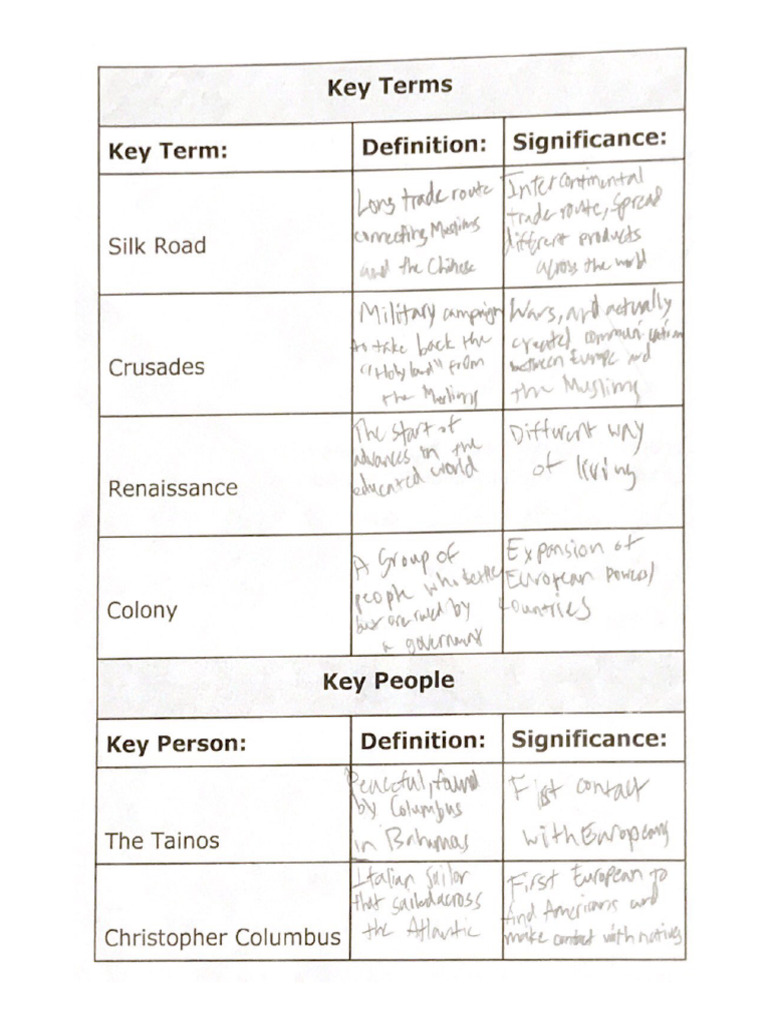 Key Terms
Key Term: Definition: Significance:
Silk Road
Long trade route
connecting Muslims
and the Chinese
Intercontinental
trade route, spread
different products
across the world
Crusades
Military campaign
to take back the
"Holy land" from
the Muslims
Wars, and actually
created communication
between Europe and
the Muslims
Renaissance
The start of
advances in the
educated world
Different way
of living
Colony
A Group of
people who settle
but are ruled by
a government
Expansion of
European Powers/
Countries
Key People
Key Person: Definition: Significance:
The Tainos
Peaceful, found
by Columbus
in Bahamas
First contact
with Europeans
Christopher Columbus
Italian Sailor
that sailed across
the Atlantic
First European to
find Americans and
make contact with natives